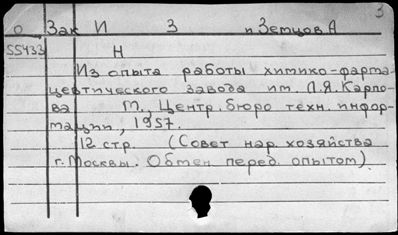 3
О Зак И З п Земцов А
55433 Н
Из опыта работы химико-фарма
цевтического завода им. Л.Я.Карпо-
ва М., Центр. бюро техн. инфор-
мации, 1957.
12 стр. (Совет нар. хозяйства
г. Москвы. Обмен перед. опытом)